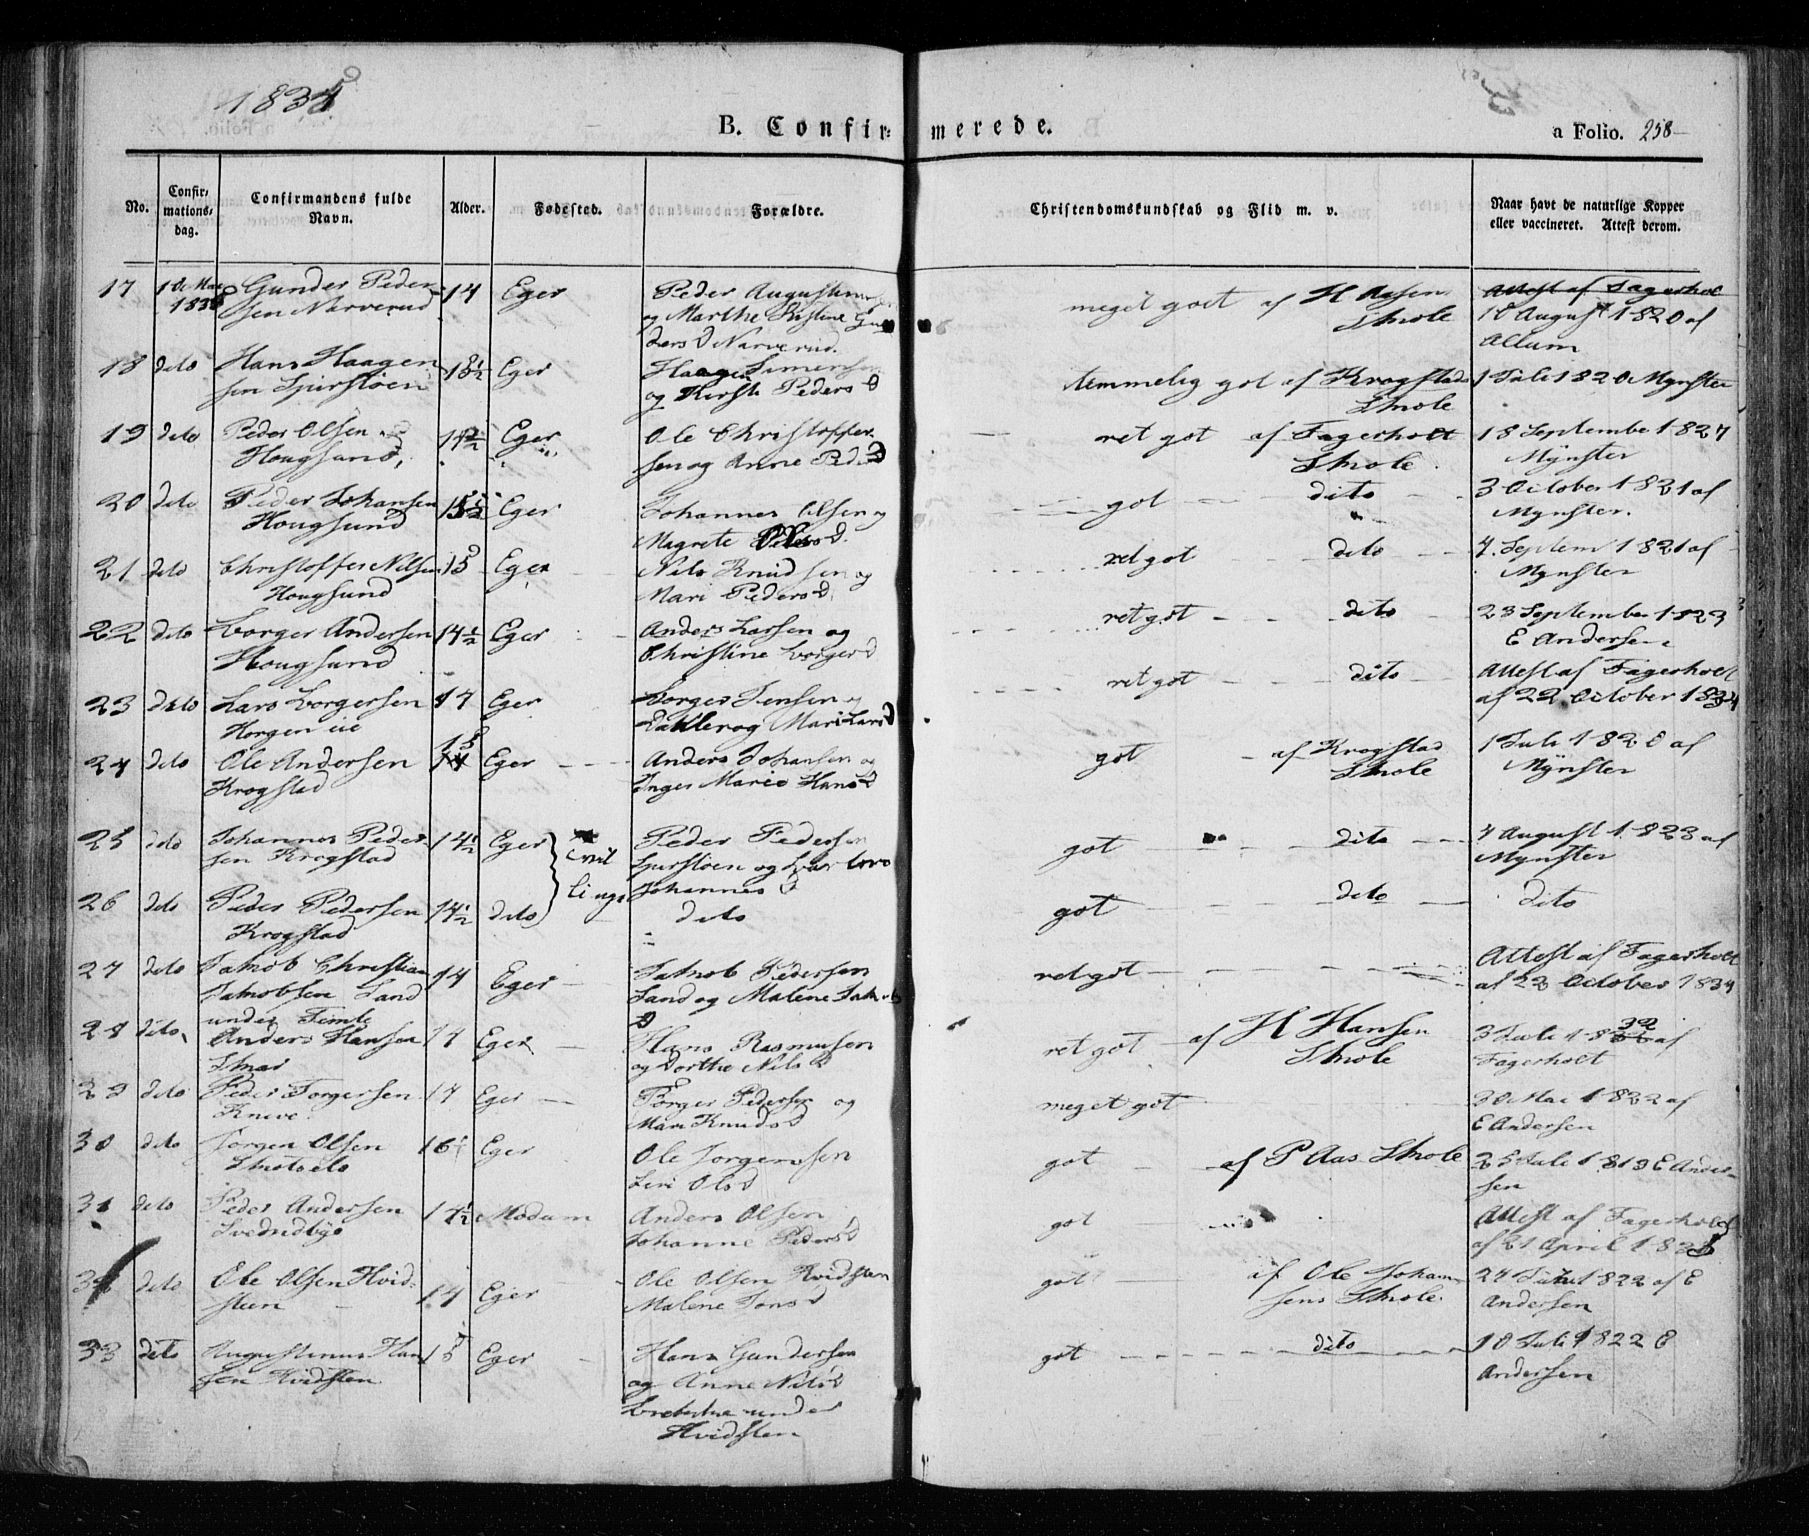 1835
B. Confirmerede.
a Folio. 258
No.
Confirmations-dag.
Confirmandens fulde Navn.
Alder.
Fødested.
Forældre.
Christendomskundskab og Flid m. v.
Naar havt de naturlige Kopper eller vaccineret. Attest derom.
17 1de Mai Gunder Peder- 14 Eger Peder Augustinus meget godt af H Aasen Attest af Fagerholt
1835 sen Narverud og Marthe Kistine Gun Skole 10 August 1820 af
ders D Narverud. Allum
18 dito Hans Haagen 15½ Eger Haagen Simensen temmelig got af Krogstads 1 Juli 1820 Mynster
sen Spirstøen og Kirsti Peders D Skole
19 dito Peder Olsen 14½ Eger Ole Christoffer ret got af Fagerholt 18 September 1827
Hougsund, sen og Anne Peders D Skole Mynster
20 dito Peder Johansen 15½ Eger Johannes Olsen og got dito 3 October 1821 af
Hougsund Magrete D. Mynster.
21 dito Christoffer Nilsen 15 Eger Nils Knudsen og ret got dito 4. Septem 1821 af
Hougsund Mari Peders D. Mynster
22 dito Borger Andersen 14½ Eger Anders Larsen og ret got dito 23 September 1823
Hougsund Christine Borger D E Andersen
23 dito Lars Borgersen 17 Eger Borger Jensen og ret got dito Attest af Fagerholt
Horgen eie Mari Lars D af 22 October 1834
24 dito Ole Andersen 15 Eger Anders Johansen og got af Krogstad 1 Juli 1820 af
Krogstad Inger Marie Hans D Skole Mynster
25 dito Johannes Peder- 14½ Eger Tvil Peder Pedersen got dito 4 August 1823 af
sen Krogstad linge Spirstøen og Mynster
Johannes D
26 dito Peder Pedersen 14½ dito dito got dito dito
Krogstad
27 dito Jakob Christian 14 Eger Jakob Pedersen ret got Attest af Fagerholt
Jakobsen Sand Sand og Malene Jakobs af 23 October 1834
under D
28 dito Anders Hansen 17 Eger Hans Rasmusen ret got af H Hansen 3 Juli 1832 af
og Dorthe Nils D Skole Fagerholt
29 dito Peder Torgersen 17 Eger Torger Pedersen og meget got 30 Mai 1822 af
Kneve Mari Knuds D E Andersen
30 dito Jørgen Olsen 16½ Eger Ole Jørgensen got af P Aas Skole 25 Juli 1819 E Ander-
Skotselv Siri Ols D sen
31 dito Peder Andersen 17½ Modum Anders Olsen got Attest af Fagerholt
Svendbye Johanne Peders D af 21 April 1835
32 dito Ole Olsen Hvid- 14 Eger Ole Olsen Hvidsteen got af Ole Johan- 24 1822 af E
steen Malene Jons D sens Skole. Andersen
33 dito Augustinus Han 15 Eger Hans Gundersen got dito 10 Juli 1822 E
sen Hvidsten og Anne Nils D Andersen
under
Hvidsten